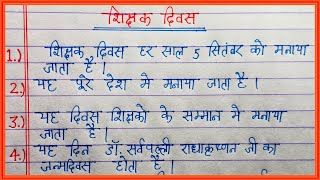 शिक्षक दिवस
1.) शिक्षक दिवस हर साल 5 सितंबर को मनाया
जाता है ।
2.) यह पूरे देश मे मनाया जाता है ।
3.) यह दिवस शिक्षको के सम्मान मे मनाया
जाता है ।
4.) यह दिन डॉ. सर्वपल्ली राधाकृष्णन जी का
जन्मदिवस होता है ।